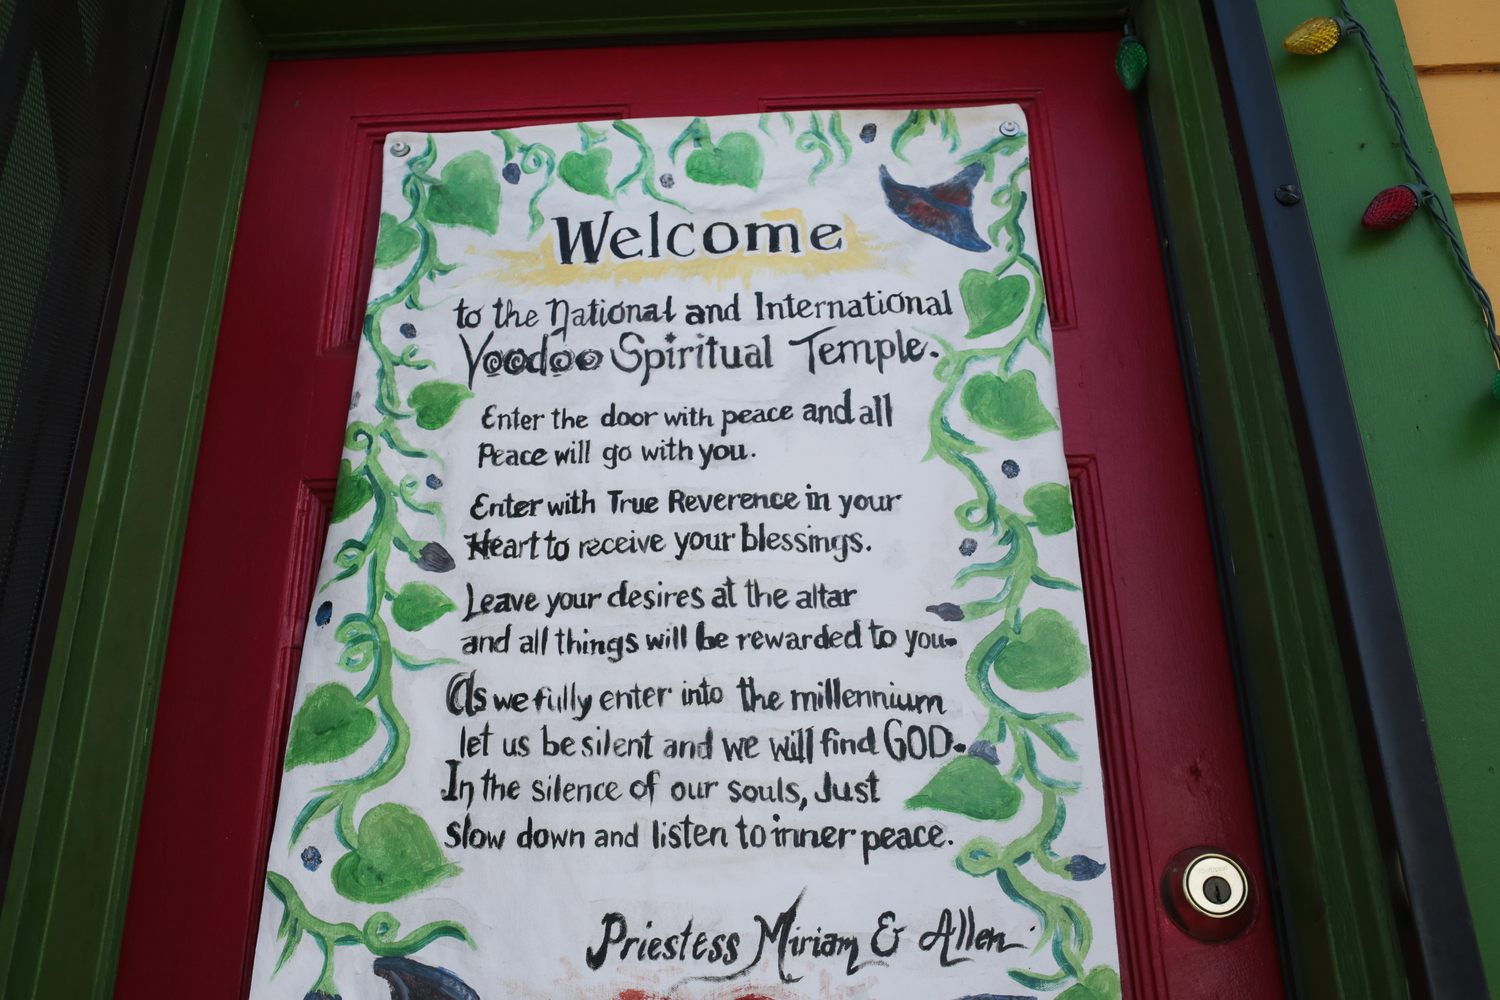 Welcome
to the National and International
Voodoo Spiritual Temple.
Enter the door with peace and all
Peace will go with you.
Enter with True Reverence in your
Heart to receive your blessings.
Leave your desires at the altar
and all things will be rewarded to you.
As we fully enter into the millennium
let us be silent and we will find GOD.
In the silence of our souls, Just
slow down and listen to inner peace.
Priestess Miriam & Allen